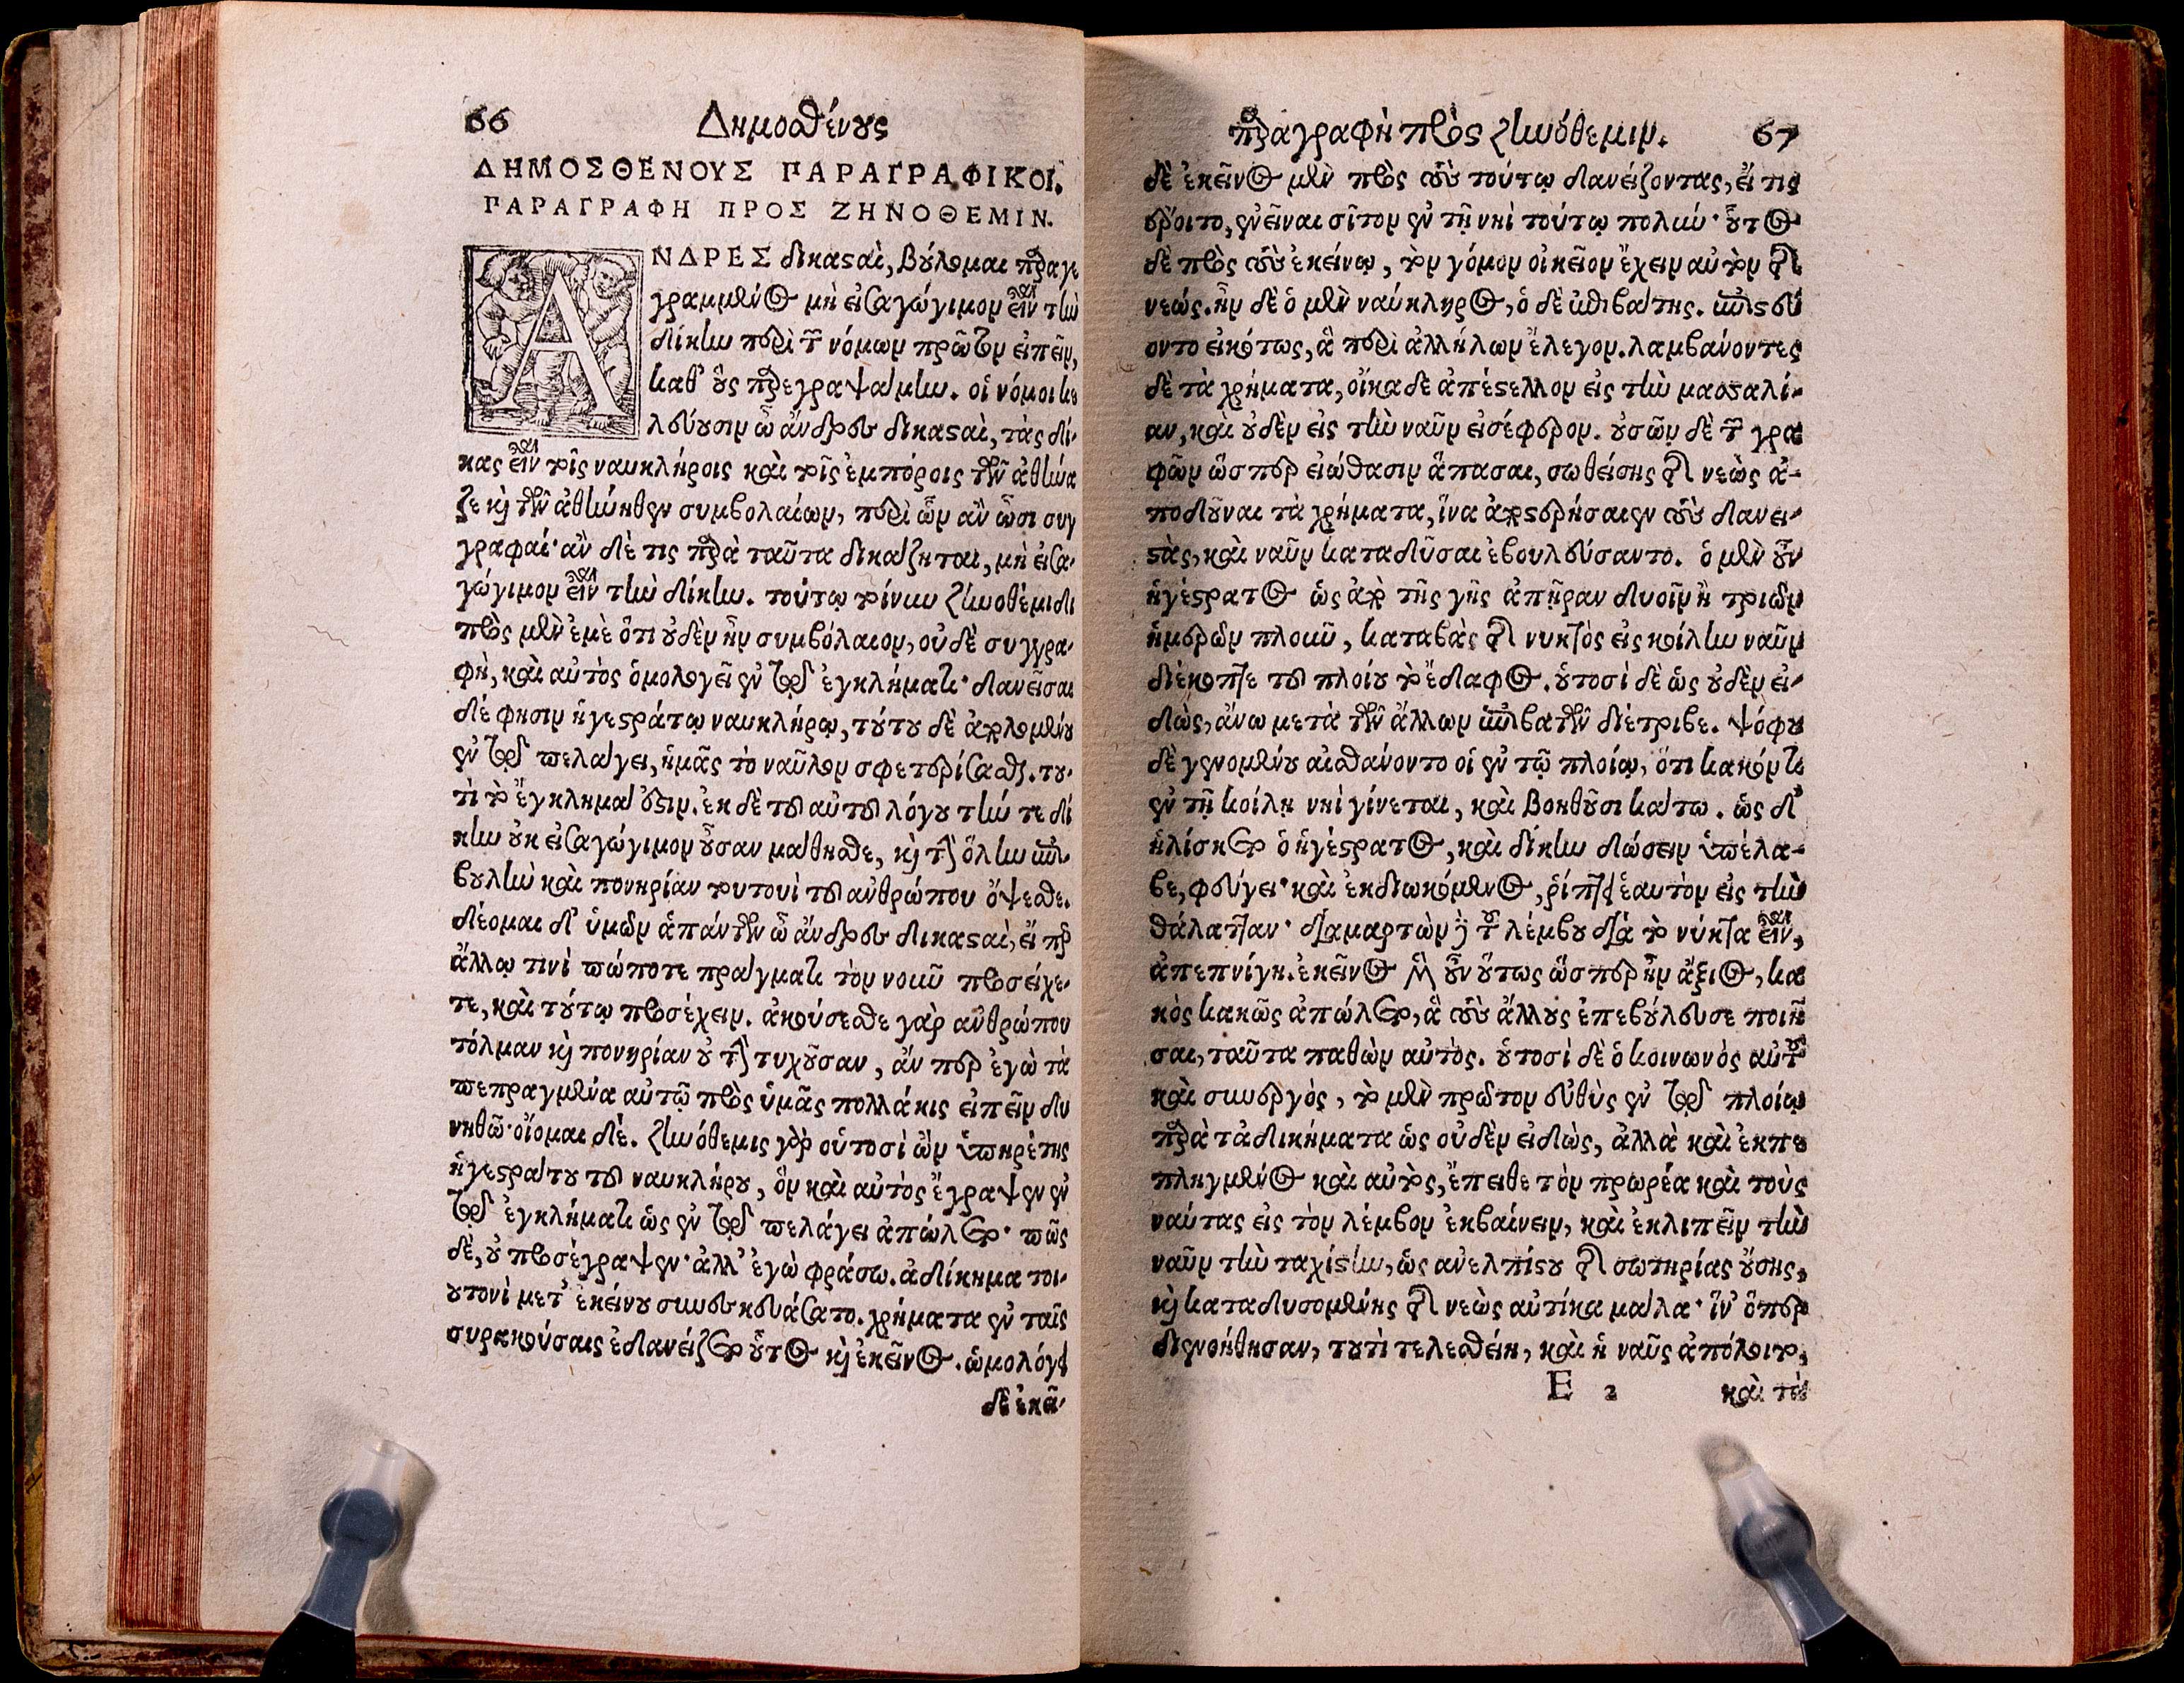 66 Δημοσθένους
ΔΗΜΟΣΘΕΝΟΥΣ ΠΑΡΑΓΡΑΦΙΚΟΙ.
ΠΑΡΑΓΡΑΦΗ ΠΡΟΣ ΖΗΝΟΘΕΜΙΝ.
ΑΝΔΡΕΣ δικασαὶ, βούλομαι παραγε
γραμμένος μὴ εἰσαγώγιμον εἶναι τὴν
δίκην περὶ τῶν νόμων πρῶτον εἰπεῖν,
καθ' οὓς παρεγραψάμην. οἱ νόμοι κε
λεύουσιν ὦ ἄνδρες δικασαὶ, τὰς δί-
κας εἶναι τοῖς ναυκλήροις καὶ τοῖς ἐμπόροις τῶν ἀθήνα
ζε καὶ τῶν ἀθήνηθεν συμβολαίων, περὶ ὧν ἂν ὦσι συγ
γραφαί· ἂν δέ τις παρὰ ταῦτα δικάζηται, μὴ εἰσα-
γώγιμον εἶναι τὴν δίκην. τούτῳ τοίνυν ζηνοθέμιδι
πρὸς μὲν ἐμὲ ὅτι οὐδὲν ἦν συμβόλαιον, οὐδὲ συγγρα-
φὴ, καὶ αὐτὸς ὁμολογεῖ ἐν τῷ ἐγκλήματι· δανεῖσαι
δέ φησιν ἡγεστράτῳ ναυκλήρῳ, τούτου δὲ ἀπολομένου
ἐν τῷ πελάγει, ἡμᾶς τὸ ναῦλον σφετερίσασθαι. του-
τὶ τὸ ἔγκλημά ἐστιν. ἐκ δὲ τοῦ αὐτοῦ λόγου τήν τε δί
κην οὐκ εἰσαγώγιμον οὖσαν μάθησθε, καὶ τὴν ὅλην ἐπι-
βουλὴν καὶ πονηρίαν τουτουὶ τοῦ ἀνθρώπου ὄψεσθε.
δέομαι δ' ὑμῶν ἁπάντων ὦ ἄνδρες δικασαὶ, εἴ περ
ἄλλῳ τινὶ πώποτε πράγματι τὸν νοῦν προσείχε-
τε, καὶ τούτῳ προσέχειν. ἀκούσεσθε γὰρ ἀνθρώπου
τόλμαν καὶ πονηρίαν οὐ τὴν τυχοῦσαν, ἄν περ ἐγὼ τὰ
πεπραγμένα αὐτῷ πρὸς ὑμᾶς πολλάκις εἰπεῖν δυ
νηθῶ· οἴομαι δέ. ζηνόθεμις γὰρ οὑτοσὶ ὢν ὑπηρέτης
ἡγεστράτου τοῦ ναυκλήρου, ὃν καὶ αὐτὸς ἔγραψεν ἐν
τῷ ἐγκλήματι ὡς ἐν τῷ πελάγει ἀπώλετο· πῶς
δὲ, οὐ προσέγραψεν· ἀλλ' ἐγὼ φράσω. ἀδίκημα τοι-
ουτονὶ μετ' ἐκείνου συνεσκευάσατο. χρήματα ἐν ταῖς
συρακούσαις ἐδανείζετο οὗτος καὶ ἐκεῖνος. ὡμολόγει
δὲ ἐκεῖ-
παραγραφὴ πρὸς ζηνόθεμιν. 67
δὲ ἐκεῖνος μὲν πρὸς τοὺς τούτῳ δανείζοντας, εἴ τις
ἔροιτο, ἐνεῖναι σῖτον ἐν τῇ νηὶ τούτῳ πολύν· οὗτος
δὲ πρὸς τοὺς ἐκείνῳ, τὸν γόμον οἰκεῖον ἔχειν αὐτὸν τῆς
νεώς. ἦν δὲ ὁ μὲν ναύκληρος, ὁ δὲ ἐπιβάτης. ἐπιστεύ
οντο εἰκότως, ἃ περὶ ἀλλήλων ἔλεγον. λαμβάνοντες
δὲ τὰ χρήματα, οἴκαδε ἀπέστελλον εἰς τὴν μασσαλί-
αν, καὶ οὐδὲν εἰς τὴν ναῦν εἰσέφερον. οὐσῶν δὲ τῶν γρα
φῶν ὥσπερ εἰώθασιν ἅπασαι, σωθείσης τῆς νεὼς ἀ-
ποδοῦναι τὰ χρήματα, ἵνα ἀποστερήσαιεν τοὺς δανει-
στὰς, καὶ ναῦν καταδῦσαι ἐβουλεύσαντο. ὁ μὲν οὖν
ἡγέστρατος ὡς ἀπὸ τῆς γῆς ἀπῆραν δυοῖν ἢ τριῶν
ἡμερῶν πλοῦν, καταβὰς τῆς νυκτὸς εἰς κοίλην ναῦν
διέκοπτε τοῦ πλοίου τὸ ἔδαφος. οὑτοσὶ δὲ ὡς οὐδὲν εἰ-
δὼς, ἄνω μετὰ τῶν ἄλλων ἐπιβατῶν διέτριβε. ψόφου
δὲ γενομένου αἰσθάνοντο οἱ ἐν τῷ πλοίῳ, ὅτι κακόν τι
ἐν τῇ κοίλῃ νηὶ γίνεται, καὶ βοηθοῦσι κάτω. ὡς δ'
ἡλίσκετο ὁ ἡγέστρατος, καὶ δίκην δώσειν ὑπέλα-
βε, φεύγει· καὶ ἐκδιωκόμενος, ῥίπτει ἑαυτὸν εἰς τὴν
θάλατταν· διαμαρτὼν δὲ τοῦ λέμβου διὰ τὸ νύκτα εἶναι,
ἀπεπνίγη. ἐκεῖνος μὲν οὖν οὕτως ὥσπερ ἦν ἄξιος, κα
κὸς κακῶς ἀπώλετο, ἃ τοὺς ἄλλους ἐπεβούλευσε ποιῆ
σαι, ταῦτα παθὼν αὐτός. οὑτοσὶ δὲ ὁ κοινωνὸς αὐτοῦ
καὶ συνεργός, τὸ μὲν πρῶτον εὐθὺς ἐν τῷ πλοίῳ
παρὰ τἀδικήματα ὡς οὐδὲν εἰδὼς, ἀλλὰ καὶ ἐκπε
πληγμένος καὶ αὐτὸς, ἔπειθε τὸν πρωρέα καὶ τοὺς
ναύτας εἰς τὸν λέμβον ἐκβαίνειν, καὶ ἐκλιπεῖν τὴν
ναῦν τὴν ταχίστην, ὡς ἀνελπίστου τῆς σωτηρίας οὔσης,
καὶ καταδυσομένης τῆς νεὼς αὐτίκα μάλα· ἵν' ὅπερ
διενοήθησαν, τουτὶ τελεσθείη, καὶ ἡ ναῦς ἀπόλοιτο,
E 2 καὶ τὰ